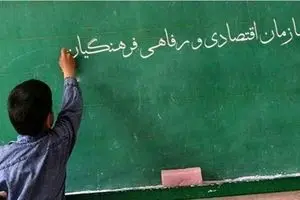 زمان اقتصادی و رفاهی فرهنگیان